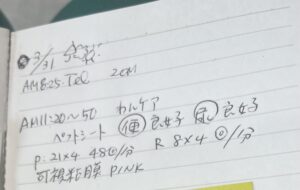 3/31
AM8:25 Tel
AM11:20~50
ペットシート 便 良好 尿 良好
P: 21×4 48回/分 R 8×4 回/分
可視粘膜 PINK